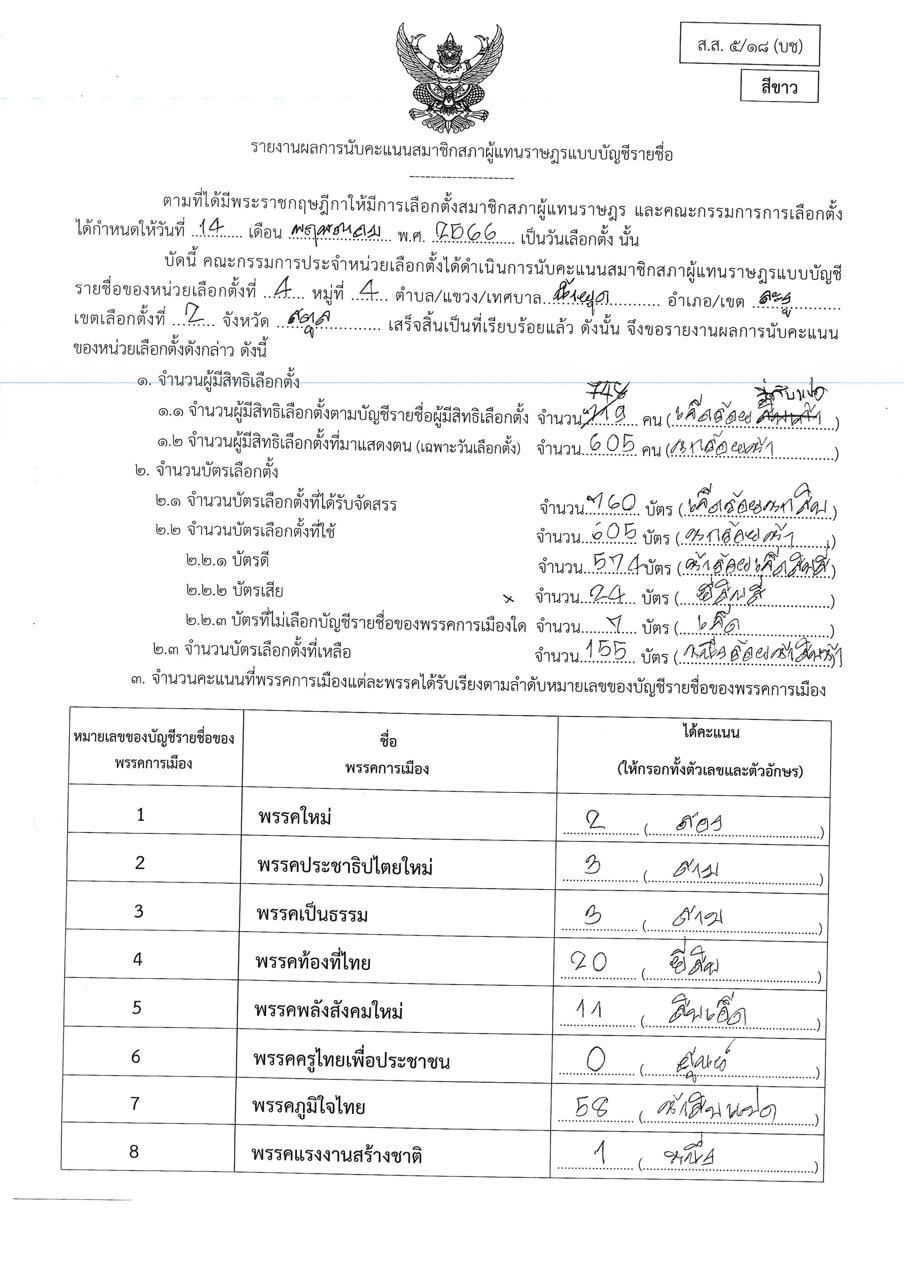 ส.ส. ๕/๑๘ (บช)
สีขาว
รายงานผลการนับคะแนนสมาชิกสภาผู้แทนราษฎรแบบบัญชีรายชื่อ
ตามที่ได้มีพระราชกฤษฎีกาให้มีการเลือกตั้งสมาชิกสภาผู้แทนราษฎร และคณะกรรมการการเลือกตั้ง
ได้กำหนดให้วันที่ 14 เดือน พฤษภาคม พ.ศ. 2566 เป็นวันเลือกตั้ง นั้น
บัดนี้ คณะกรรมการประจำหน่วยเลือกตั้งได้ดำเนินการนับคะแนนสมาชิกสภาผู้แทนราษฎรแบบบัญชี
รายชื่อของหน่วยเลือกตั้งที่ 4 หมู่ที่ 4 ตำบล/แขวง/เทศบาล น้ำผุด อำเภอ/เขต ละงู
เขตเลือกตั้งที่ 2 จังหวัด สตูล เสร็จสิ้นเป็นที่เรียบร้อยแล้ว ดังนั้น จึงขอรายงานผลการนับคะแนน
ของหน่วยเลือกตั้งดังกล่าว ดังนี้
๑. จำนวนผู้มีสิทธิเลือกตั้ง
748 สี่สิบแปด
๑.๑ จำนวนผู้มีสิทธิเลือกตั้งตามบัญชีรายชื่อผู้มีสิทธิเลือกตั้ง จำนวน คน (เจ็ดร้อย )
๑.๒ จำนวนผู้มีสิทธิเลือกตั้งที่มาแสดงตน (เฉพาะวันเลือกตั้ง) จำนวน 605 คน (หกร้อยห้า)
๒. จำนวนบัตรเลือกตั้ง
๒.๑ จำนวนบัตรเลือกตั้งที่ได้รับจัดสรร จำนวน 760 บัตร (เจ็ดร้อยหกสิบ)
๒.๒ จำนวนบัตรเลือกตั้งที่ใช้ จำนวน 605 บัตร (หกร้อยห้า)
๒.๒.๑ บัตรดี จำนวน 574 บัตร (ห้าร้อยเจ็ดสิบสี่)
๒.๒.๒ บัตรเสีย × จำนวน 24 บัตร (ยี่สิบสี่)
๒.๒.๓ บัตรที่ไม่เลือกบัญชีรายชื่อของพรรคการเมืองใด จำนวน 7 บัตร (เจ็ด)
๒.๓ จำนวนบัตรเลือกตั้งที่เหลือ จำนวน 155 บัตร (หนึ่งร้อยห้าสิบห้า)
๓. จำนวนคะแนนที่พรรคการเมืองแต่ละพรรคได้รับเรียงตามลำดับหมายเลขของบัญชีรายชื่อของพรรคการเมือง
หมายเลขของบัญชีรายชื่อของพรรคการเมือง ชื่อพรรคการเมือง ได้คะแนน (ให้กรอกทั้งตัวเลขและตัวอักษร)
1 พรรคใหม่ 2 (สอง)
2 พรรคประชาธิปไตยใหม่ 3 (สาม)
3 พรรคเป็นธรรม 3 (สาม)
4 พรรคท้องที่ไทย 20 (ยี่สิบ)
5 พรรคพลังสังคมใหม่ 11 (สิบเอ็ด)
6 พรรคครูไทยเพื่อประชาชน 0 (ศูนย์)
7 พรรคภูมิใจไทย 58 (ห้าสิบแปด)
8 พรรคแรงงานสร้างชาติ 1 (หนึ่ง)